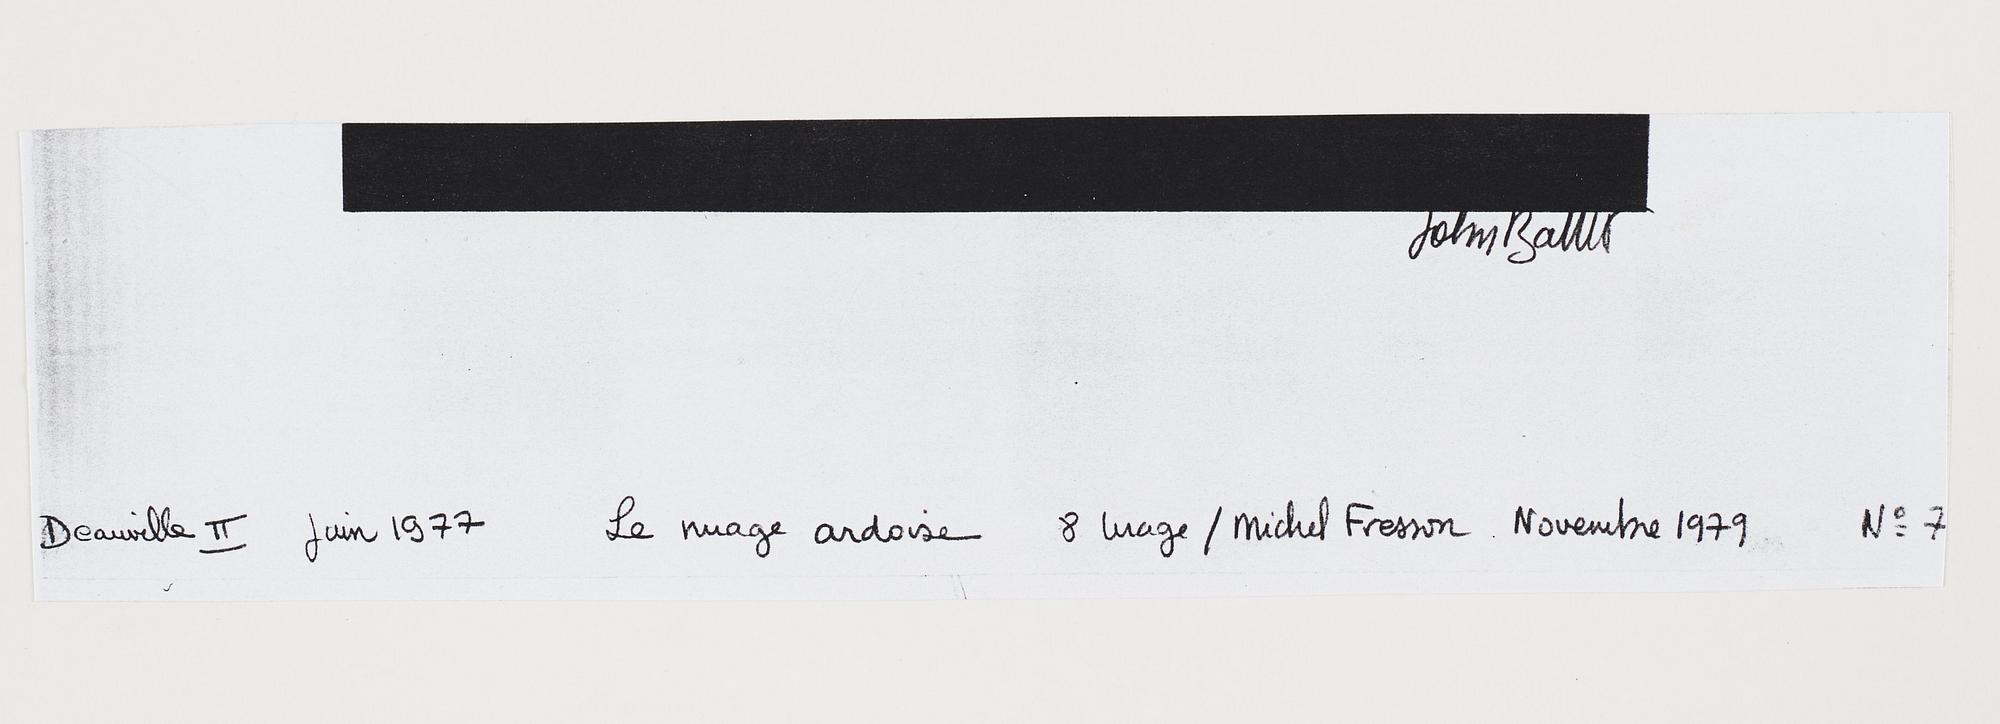 John Batho
Deauville II Juin 1977 Le nuage ardoise 8 tirage / Michel Fresson. Novembre 1979 Nº 7